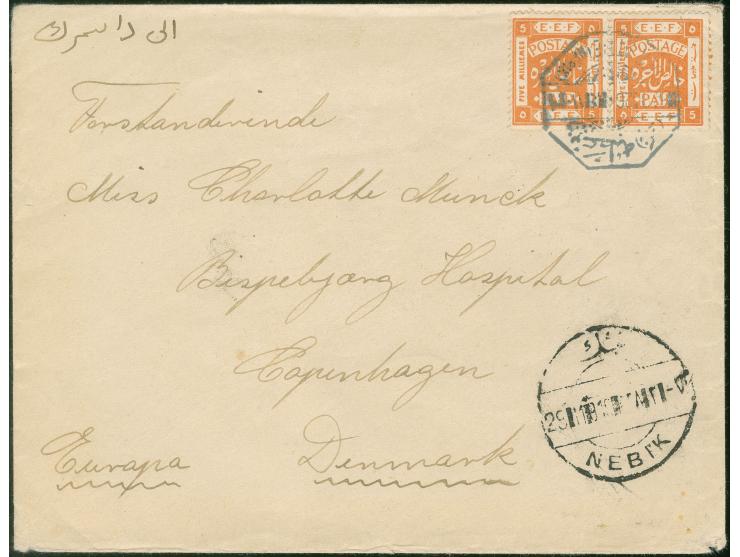 الى دانمرك
E·E·F E·E·F
POSTAGE POSTAGE
PAID
FIVE MILLIEMES
5 5 5 5
Forstanderinde
Miss Charlotte Munck
Bispebjærg Hospital
Copenhagen
Europa Denmark
نبك
NEBIK